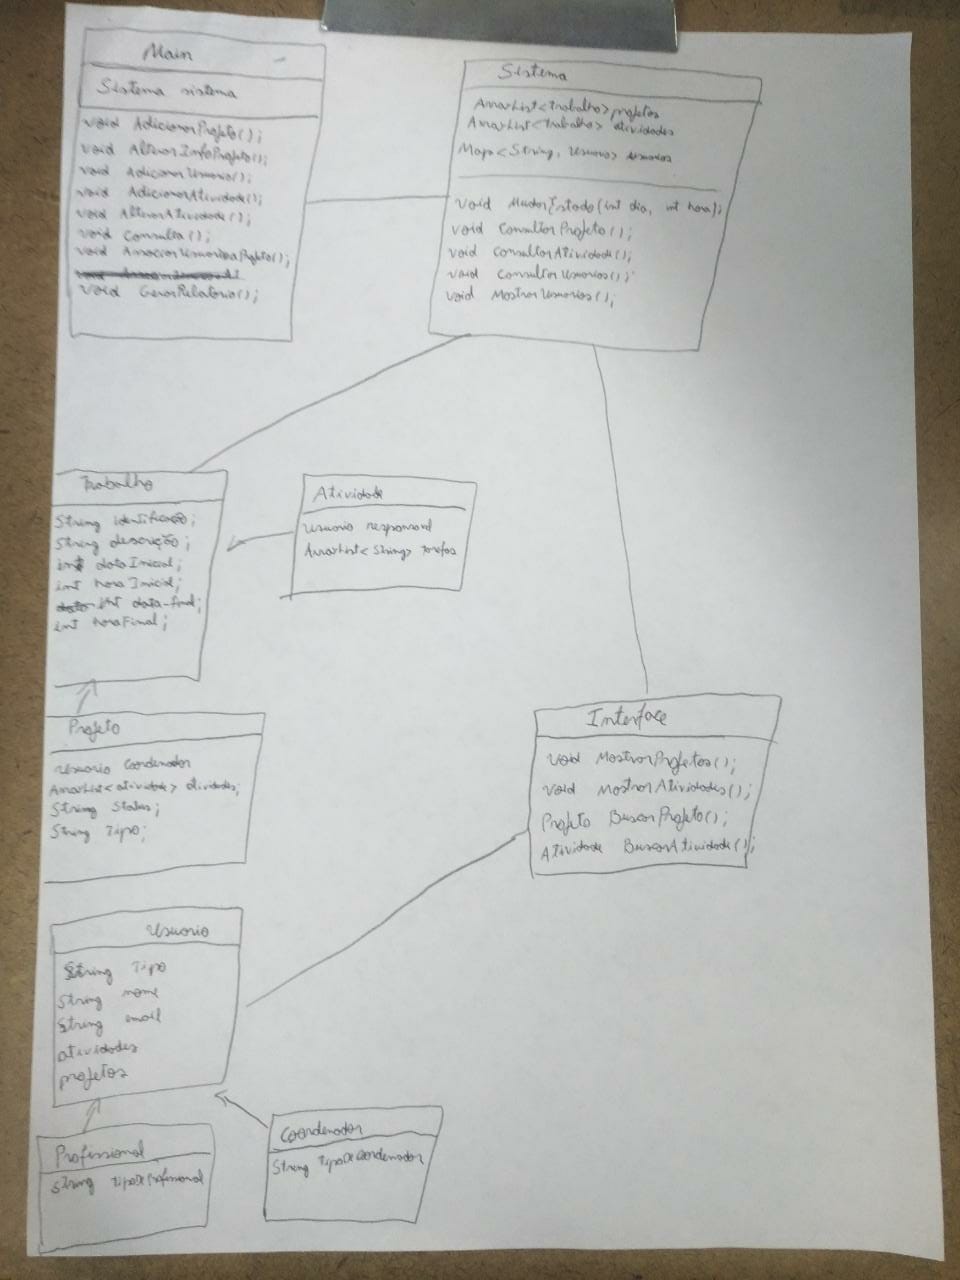 Main
Sistema sistema
void AdicionarProjeto();
void AlterarInfoProjeto();
void AdicionarUsuario();
void AdicionarAtividade();
void AlterarAtividade();
void Consulta();
void AssociarUsuarioaProjeto();
void GerarRelatorio();
Sistema
ArrayList<trabalho> projetos
ArrayList<trabalho> atividades
Map<String, Usuario> usuarios
void MudarEstado(int dia, int hora);
void ConsultarProjeto();
void ConsultarAtividade();
void ConsultarUsuarios();
void MostrarUsuarios();
Trabalho
String identificação;
String descrição;
int dataInicial;
int horaInicial;
int data-final;
int horaFinal;
Atividade
Usuario responsavel
ArrayList<String> tarefas
Projeto
Usuario Coordenador
ArrayList<atividade> atividades;
String Status;
String Tipo;
Interface
void MostrarProjetos();
void MostrarAtividades();
Projeto BuscarProjeto();
Atividade BuscarAtividade();
Usuario
String Tipo
String nome
String email
atividades
projetos
Profissional
String tipoDeProfissional
Coordenador
String TipoDeCoordenador